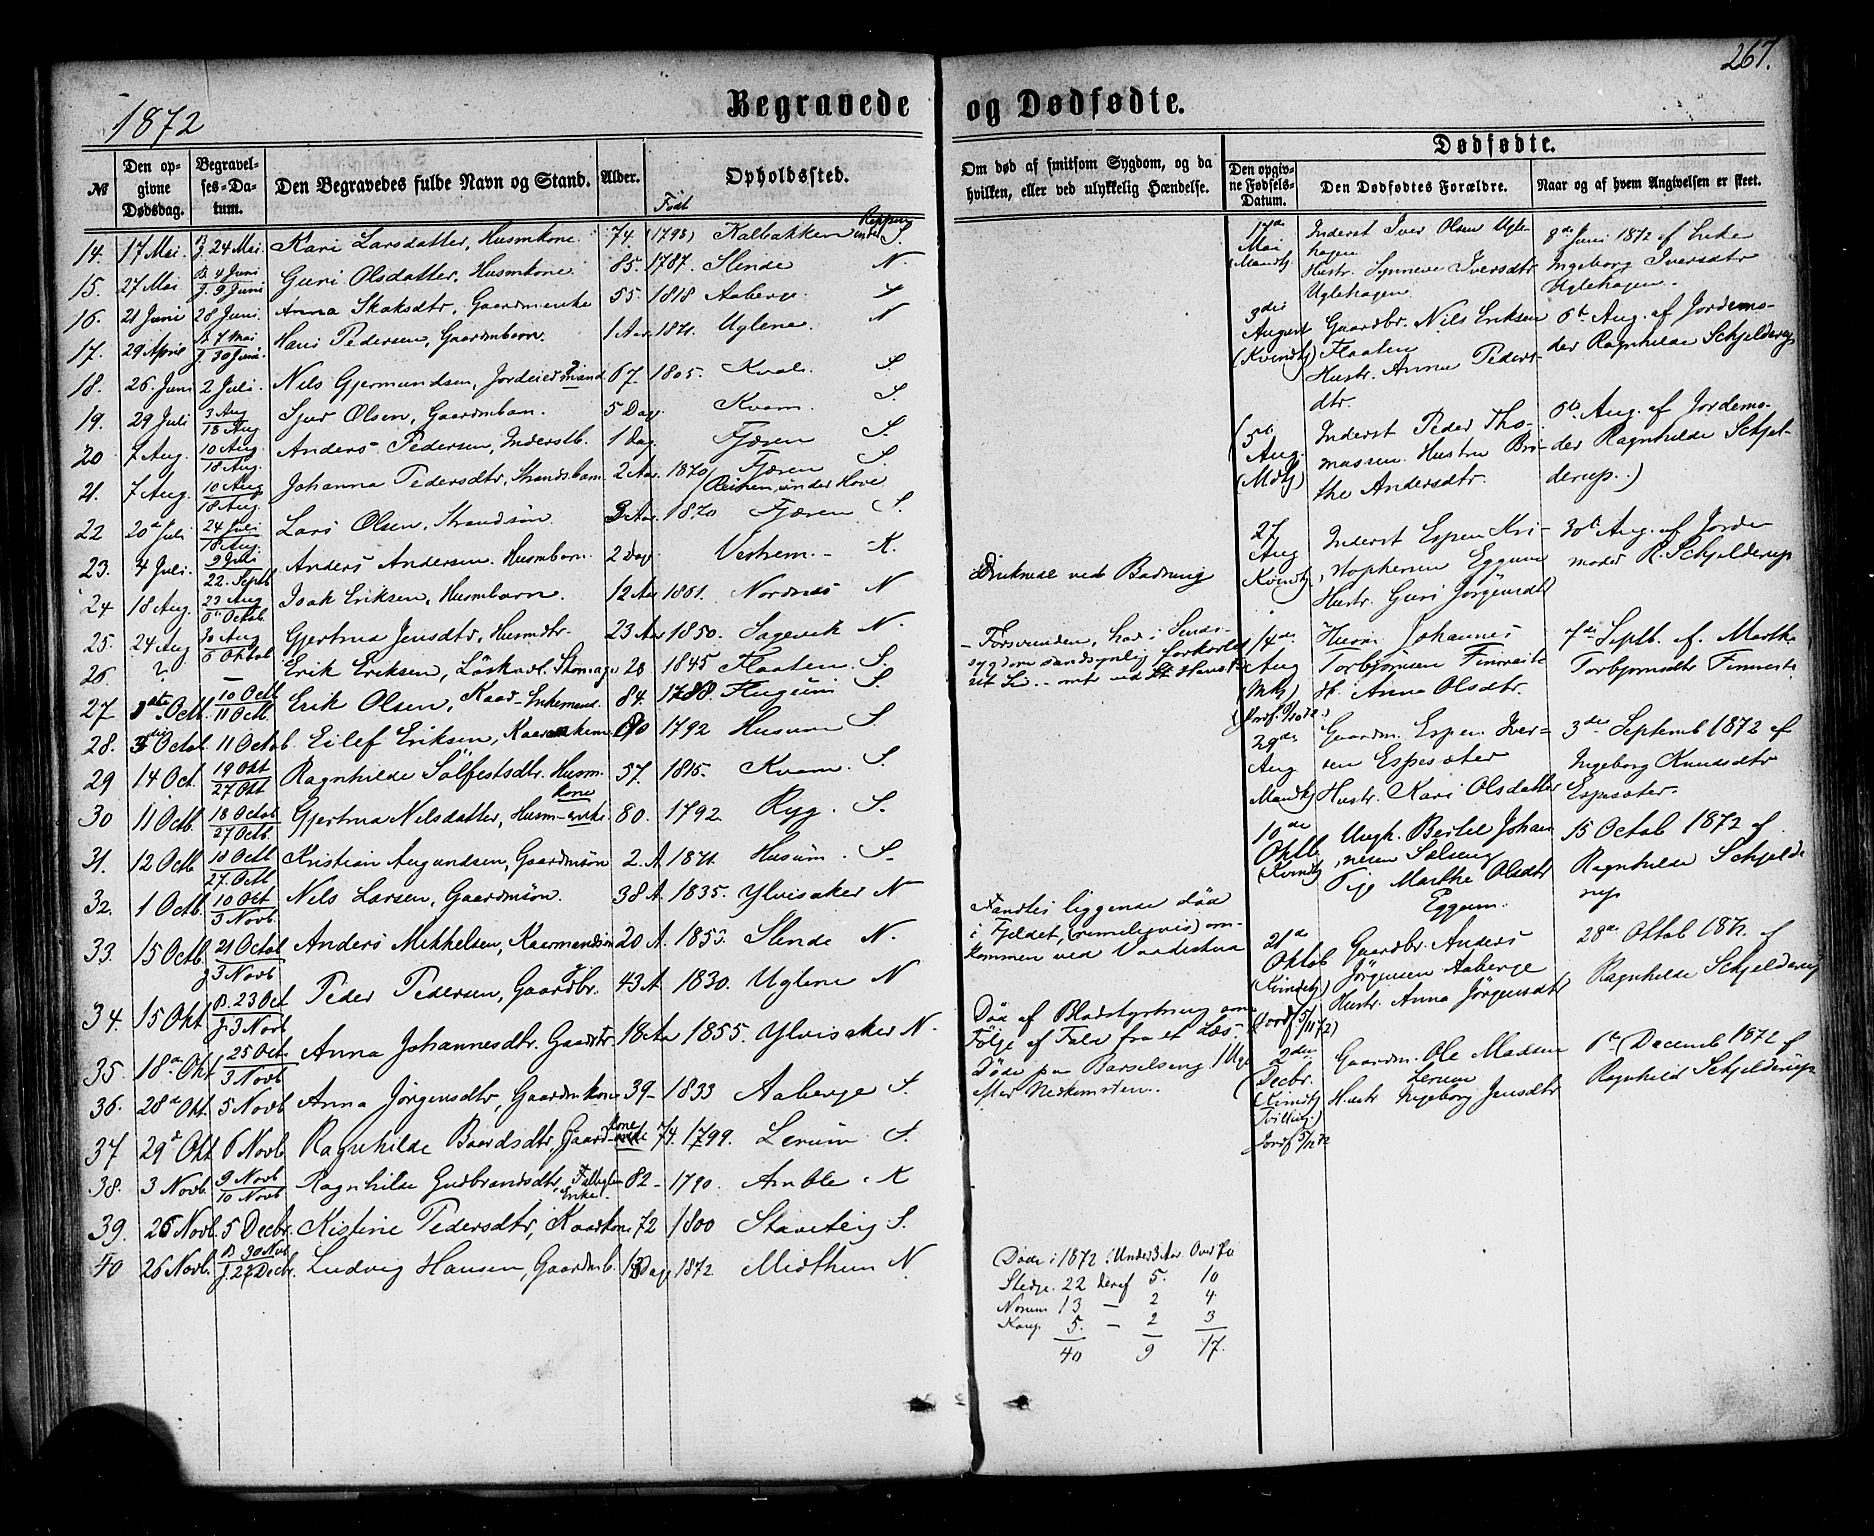 267.
1872
Begravede og Dødfødte.
№
Den opgivne Dødsdag.
Begravelses-Datum.
Den Begravedes fulde Navn og Stand.
Alder.
Opholdssted.
Født
Om død af smitsom Sygdom, og da hvilken, eller ved ulykkelig Hændelse.
Dødfødte.
Den opgivne Fødsels-Datum.
Den Dødfødtes Forældre.
Naar og af hvem Angivelsen er skeet.
14. 17 Mai J. 24 Mai. Kari Larsdatter, Husmkone 74. (1798) Kalbakken under S.
15. 27 Mai B. 4 Juni J. 9 Juni Guri Olsdatter, Husmkone. 85. 1787. Slinde N
16. 21 Juni 28 Juni. Anna Skaksdtr, Gaardmenke 55. 1818 Aaberge. S
17. 29 April B. 7 Mai J. 30 Juni. Hans Pedersen, Gaardmbarn. 1 Aar. 1871. Uglene. N
18. 26. Juni 2 Juli. Nils Gjermundsen, Jordeiermand 67. 1805. Kvale. S.
19. 29 Juli 3 Aug 18 Aug Sjur Olsen, Gaardmban. 5 Dag. Kvam. S.
20 7 Aug. 10 Aug 18 Aug. Anders Pedersen, Inderstb. 1 Dag. Fjæren S.
21. 7 Aug. 10 Aug 18 Aug. Johanna Pedersdtr, Strandsbarn 2 Aar. 1870 Fjæren S.
22 20de Juli 24 Juli 18 Aug. Lars Olsen, Strandsøn. 3 Aar. 1870 Fjæren S.
23. 4 Juli. 9 Juli 22. Septb Anders Andersen. Husmbarn. 2 Dag. Vestrem. - K.
24 18 Aug. 23 Aug 6te Octob. Isak Eriksen, Husmbarn. 12 Aar 1861. Nordnæs N
25. 24 Aug 30 Aug 6 Oktob Gjertrua Jensdtr, Husmdtr. 23 Aar 1850. Sagevik N.
26. ? — Erik Eriksen, Løskarl. 28 1845 Flaaten. S.
27 Octb. 10 Octb 11 Octb Erik Olsen, Kaar-Enkemand. 84. 1788. Flugum S.
28. 3die Octob. 11 Octob. Eilef Eriksen, 80 1792 Husum S.
29 14 Oct. 19 Okt 27 Okt Ragnhilde Sølfestsdtr. Husmkone 57. 1815. Kvam. S.
30 11 Octb. 18 Octob 27 Octb. Gjertrua Nilsdatter, Husm-enke 80. 1792 Ryg. S.
31. 12 Octb. 18 Octb 27. Octb Kristian Augundsen, Gaardmsøn 2. A 1871. Husum. S.
32. 1 Octb. 10 Oct 3 Novb. Nils Larsen, Gaardmsøn. 38 A. 1835. Ylvisaker N
33. 15 Octb. 21 Octob J 3 Novb Anders Mikkelsen, Kaarmandssøn 20 A. 1853. Slinde N.
34. 15 Okt B. 23 Oct J. 3 Novb Peder Pedersen, Gaardbr. 43 A. 1830. Uglene N
35. 18de Okt 25 Oct. 3 Novb Anna Johannesdtr. Gaardtr. 18 Aar 1855. Ylvisaker N.
36. 28de Okt. 5 Novb Anna Jørgensdtr, Gaardmkone 39- 1833 Aaberge S.
37 29de Okt 6 Novb. Ragnhilde Baardsdtr, Gaardkone 74. 1799. Lerum S.
38. 3 Novb. 9 Novb 10 Novb Ragnhilde Gudbrandsdtr, Enke. 82 - 1790. Amble. K
39. 26 Novb. 5 Decbr. Kistine Pedersdtr, Kaarkone 72 1800 Stavteig S.
40 26 Novb. B. 30 Novb J. 22 Decbr. Ludvig Hansen, Gaardmb. Dage 1872. Midthun N.
Reppen
(Reinen, under Hove
Druknede ved Badning
- Forsvunden, har i Sinds-
sygdom sandsynlig forkortet
sit Liv - omt ved St Hanstid
Fandtes liggende død
i Fjeldet, (rimeligvis) om-
kommen ved Vaadeskud
Død af Blodstyrtning om
Følge af Fald fra et Læs.
Døde paa Barselseng 1 Uge
efter Nedkomsten.
17de Mai Mandkj.
Inderst Iver Olsen Ugle-
hagen
Hustr. Synneve Iversdtr
Uglehagen.
8de Juni 1872 af Enke
Ingeborg Iversdtr
Uglehagen.
3die August (Kvindkj)
Gaardbr. Nils Eriksen
Flaaten
Hustr. Anna Peders-
dtr.
6te Aug. af Jordemo-
der Ragnhilde Schjelderup
(5te Aug. (Mdkj)
Inderst Peder Tho-
massen. Hustru Bri-
the Andersdtr.
6te Aug. af Jordemo-
der Ragnhilde Schjel-
derup.)
27 Aug Kvindkj.
Inderst Espen Kri-
stophersen Eggum
Hustr. Guri Jörgensdtr
30te Aug. af Jorde-
moder R. Schjelderup
14de Aug (Mkj)
Husm Johannes
Torbjørnsen Finneite
H. Anna Olsdtr.
7de Septb. af Martha
Torbjørnsdtr Finneite
29de Aug Mandkj
Gaardm. Espen Iver-
sen Espesæter
Hustr. Kari Olsdatter
3die Septemb 1872 af
Ingeborg Knudsdtr
Espesæter.
10de Oktb (Kvindkj
Ungk. Bertel Johan-
nesen Solseng
Pige Marthe Olsdtr
Eggum.
15 Octob 1872 af
Ragnhilde Schjelde-
rup
21de Oktob (Kvindkj)
Gaardbr. Anders
Jörgensen Aaberge
Hustr. Anna Jörgensdtr
28de Oktob 1872. af
Ragnhilde Schjelderup
Jordf. 5/11 72)
2den Decbr. (Kvindkj Tvilling.) Jordf 5/12 72
Gaardm. Ole Madsen
Lerum
Hustr Ingeborg Jensdtr
6te Decemb 1872 af
Ragnhild Schjelderup.
Døde i 1872 Under 3 Aar Over 70
Stedje. 22 deraf 5. 10
Norum 13 — 2 4
Kaup. 5. — 2 3
40 9 17.